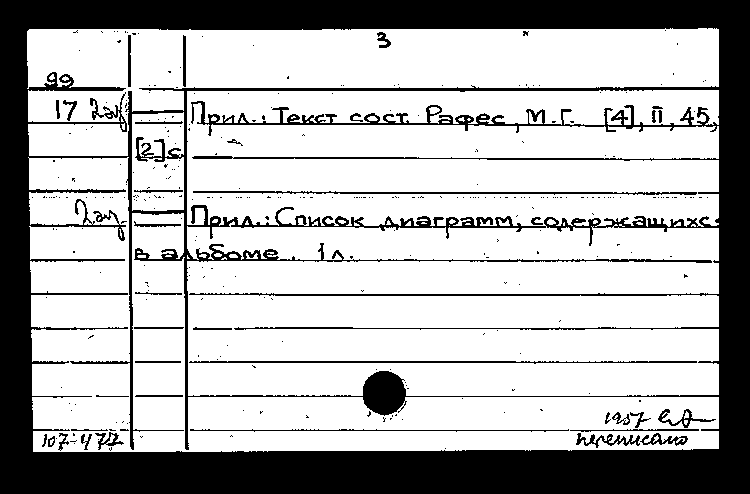 3
99
17 2эк Прил.: Текст сост. Рафес, М.Г. [4], II, 45,
[2]с.
2эк. Прил.: Список диаграмм, содержащихс
в альбоме. 1л.
1957
107-477 переписано